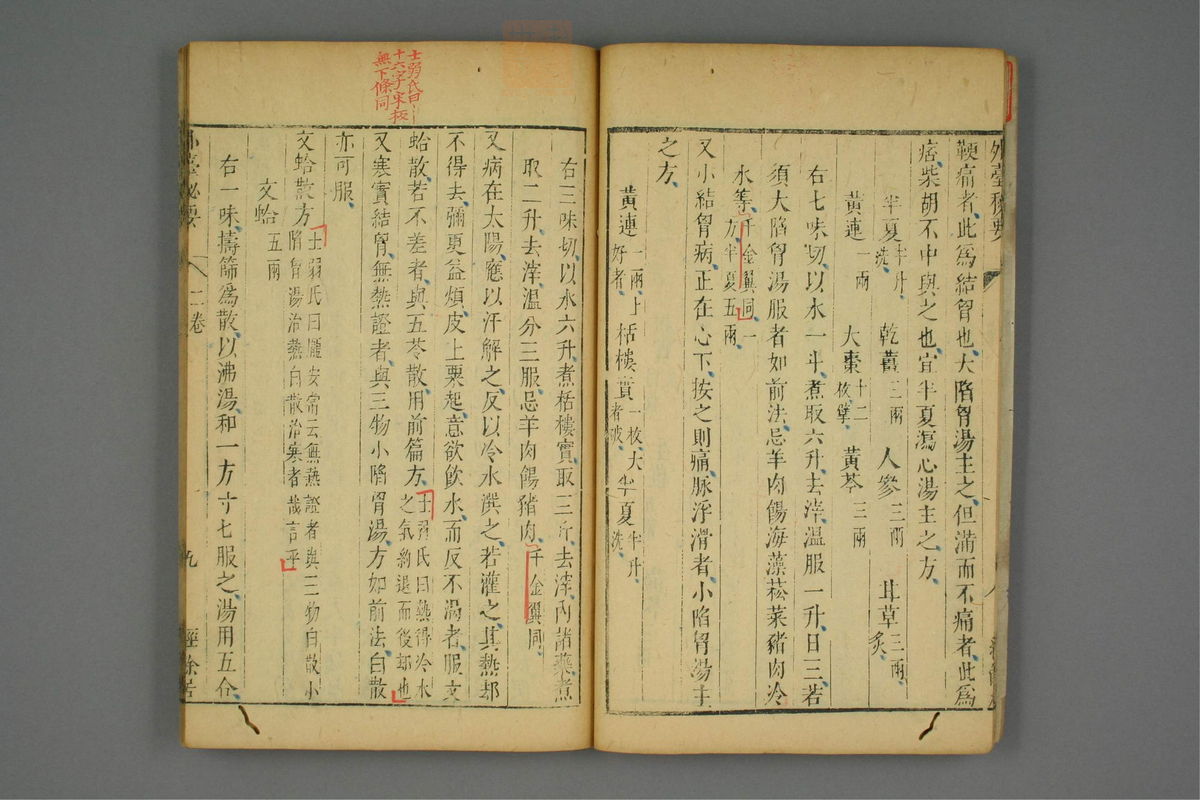 外臺秘要
鞕痛者、此爲結胷也、大陷胷湯主之、但滿而不痛者、此爲
痞、柴胡不中與之也、宜半夏瀉心湯主之方、
半夏半升、洗、 乾薑三兩 人參三兩 甘草三兩、炙、
黄連一兩 大棗十二枚擘、 黄芩三兩
右七味切、以水一斗、煮取六升、去滓、溫服一升、日三、若
須大陷胷湯服者、如前法、忌羊肉餳海藻菘菜豬肉冷
水等、千金翼同、一方半夏五兩、
又小結胷病、正在心下、按之則痛、脉浮滑者、小陷胷湯主
之方、
黄連一兩、上好者、 栝樓實一枚、大者破、 半夏半升、洗、
士弱氏曰
十六字宋板
無下條同
右三味切、以水六升、煮栝樓實、取三升、去滓、內諸藥、煮
取二升、去滓、溫分三服、忌羊肉餳豬肉、千金翼同、
又病在太陽、應以汗解之、反以冷水潠之、若灌之、其熱却
不得去、彌更益煩、皮上粟起、意欲飲水、而反不渴者、服文
蛤散、若不差者、與五苓散、用前篇方、士弱氏曰熱得冷水之氣約退而後却也
又寒實結胷、無熱證者、與三物小陷胷湯、方如前法、白散
亦可服、
文蛤散方、士弱氏曰龐安常云無熱證者與三物白散小陷胷湯治熱白散治寒者哉言乎
文蛤五兩
右一味、擣篩爲散、以沸湯和一方寸七服之、湯用五合、
外臺秘要 二卷 九 經餘居